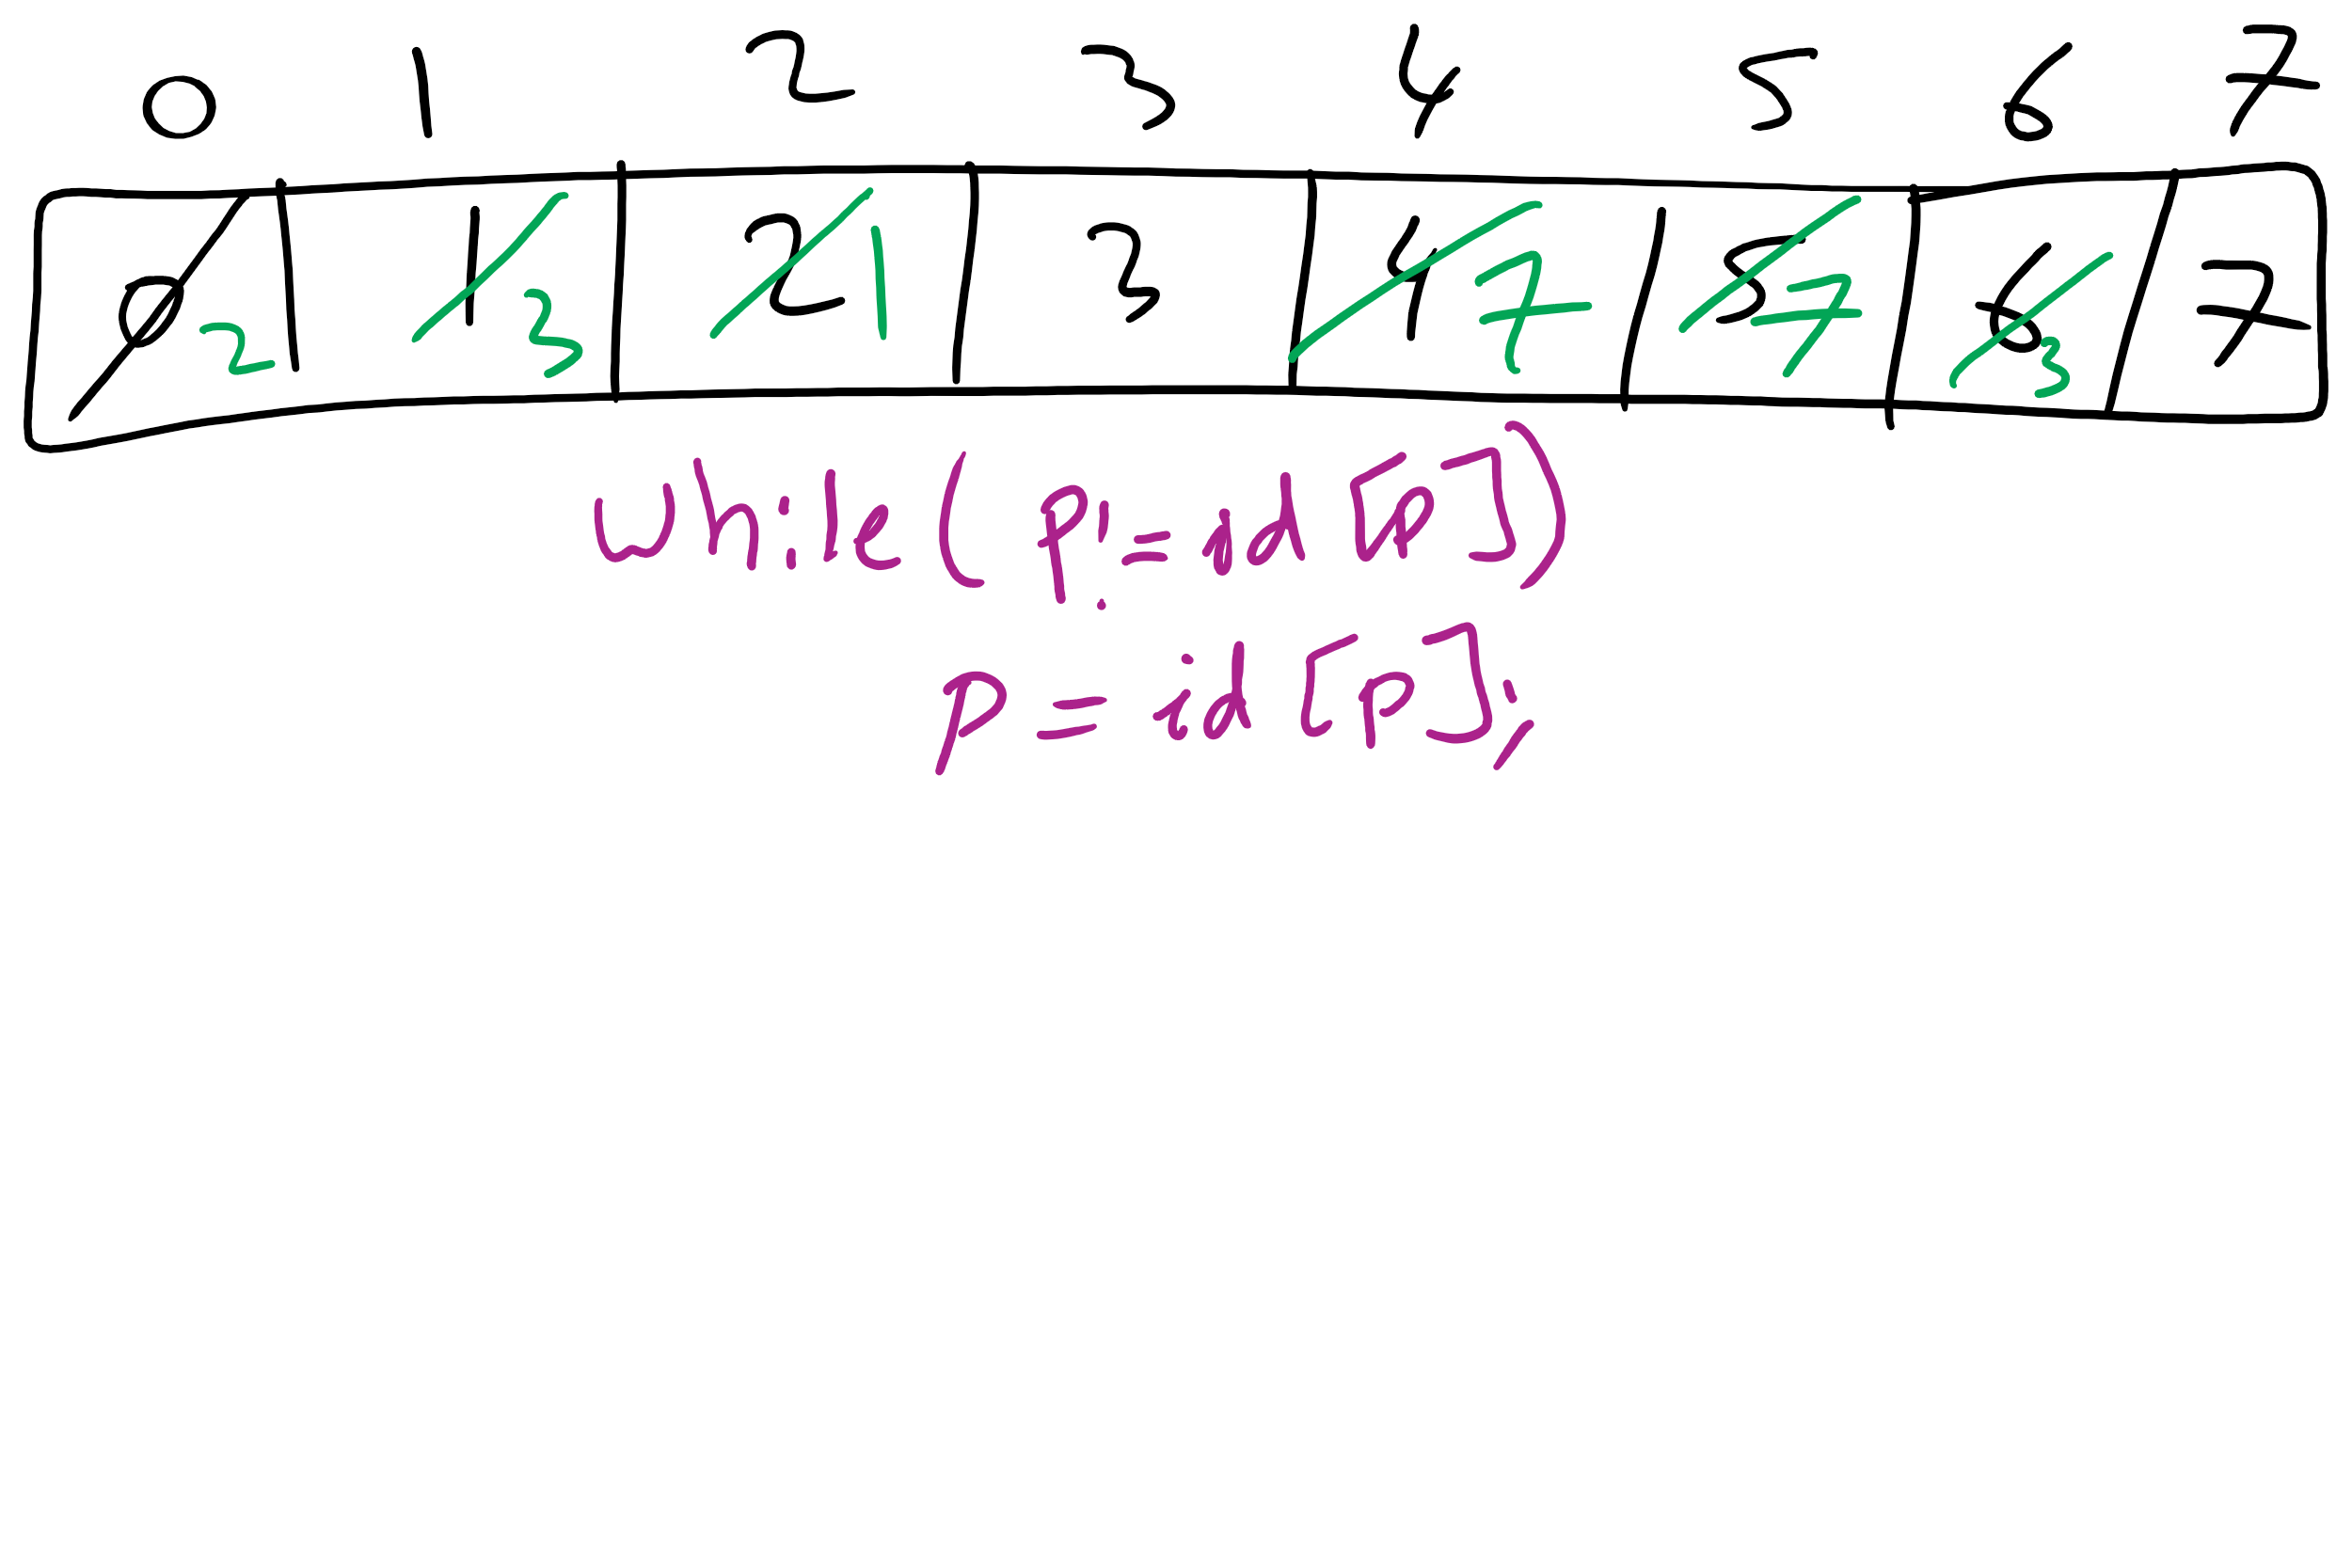 0 1 2 3 4 5 6 7
0 2 1 3 2 1 3 4 7 5 7 6 3 7
while (p != id[p])
p = id [p];